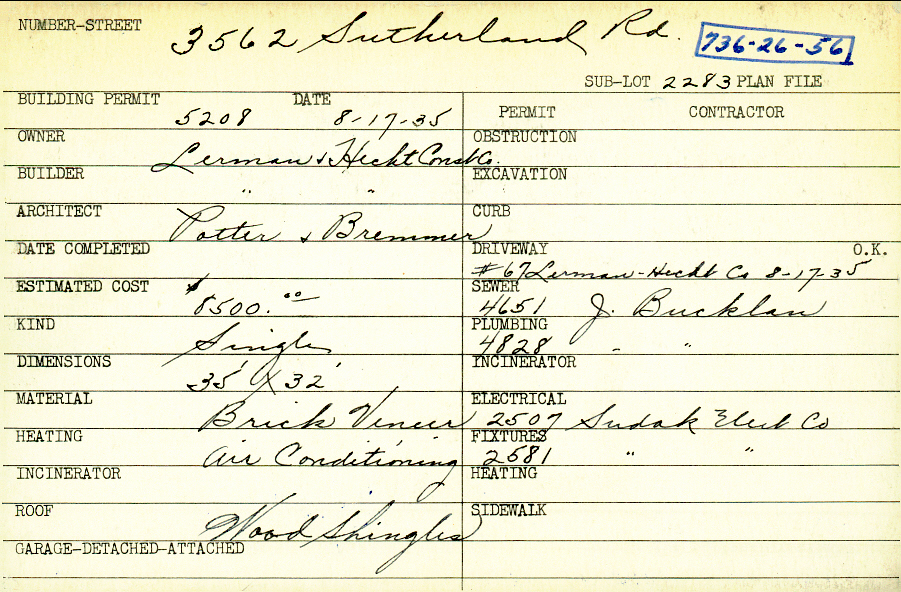 NUMBER-STREET 3562 Sutherland Rd. 736-26-56
SUB-LOT 2283 PLAN FILE
BUILDING PERMIT 5208 DATE 8-17-35
PERMIT CONTRACTOR
OWNER Lerman & Hecht Const Co.
OBSTRUCTION
BUILDER " "
EXCAVATION
ARCHITECT Potter & Bremmer
CURB
DATE COMPLETED
DRIVEWAY #67 Lerman-Hecht Co 8-17-35 O.K.
ESTIMATED COST $8500.00
SEWER 4651 J. Bucklan
KIND Single
PLUMBING 4828 - "
DIMENSIONS 35' X 32'
INCINERATOR
MATERIAL Brick Veneer
ELECTRICAL 2507 Sudak Elect Co
HEATING Air Conditioning
FIXTURES 2581 " "
INCINERATOR
HEATING
ROOF Wood Shingles
SIDEWALK
GARAGE-DETACHED-ATTACHED